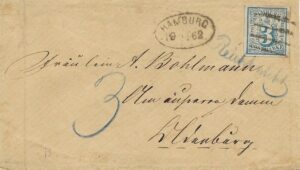 HAMBURG
9 62
3
Fräulein A. Bohlmann
3
Am äusseren Damm
Oldenburg